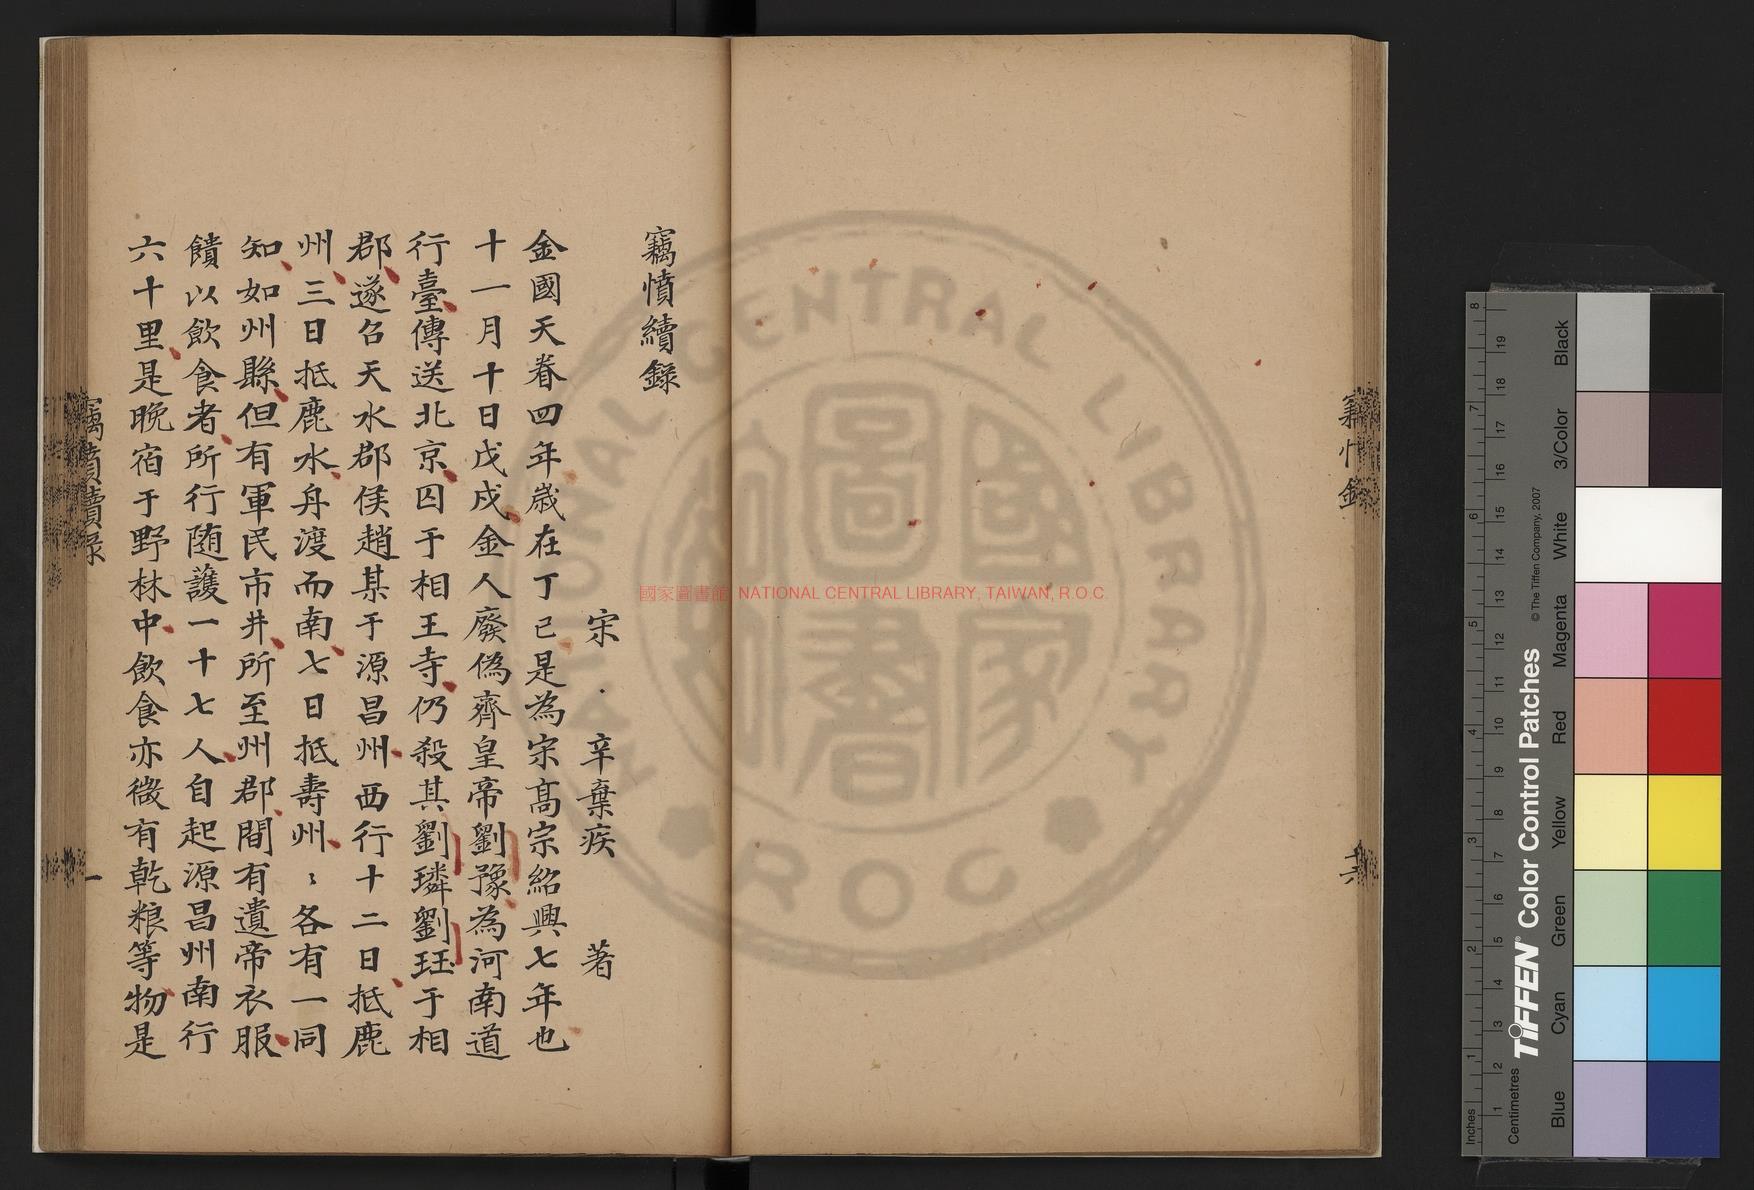 竊憤續錄
宋 辛棄疾 著
金國天眷四年歲在丁巳是為宋高宗紹興七年也
十一月十日戊戌金人廢偽齊皇帝劉豫為河南道
行臺傳送北京囚于相王寺仍殺其劉璘劉珏于相
郡遂召天水郡侯趙某于源昌州西行十二日抵鹿
州三日抵鹿水舟渡而南七日抵壽州〻各有一同
知如州縣但有軍民市井所至州郡間有遺帝衣服
饋以飲食者所行随護一十七人自起源昌州南行
六十里是晚宿于野林中飲食亦微有乾粮等物是
竊憤續录
一
國家圖書館 NATIONAL CENTRAL LIBRARY, TAIWAN, R.O.C.
NATIONAL CENTRAL LIBRARY
ROC
國家圖書
Inches
Centimetres
TIFFEN® Color Control Patches
© The Tiffen Company, 2007
Blue
Cyan
Green
Yellow
Red
Magenta
White
3/Color
Black